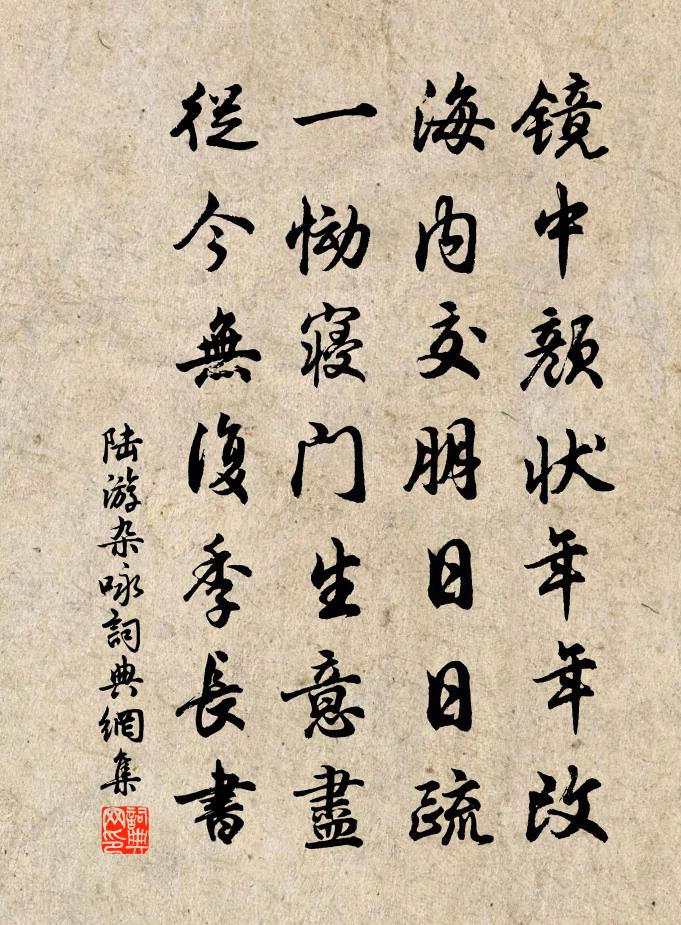 鏡中顏狀年年改
海内交朋日日疏
一慟寢门生意盡
從今無復季長書
陆游杂咏詞典網集
詞典网印